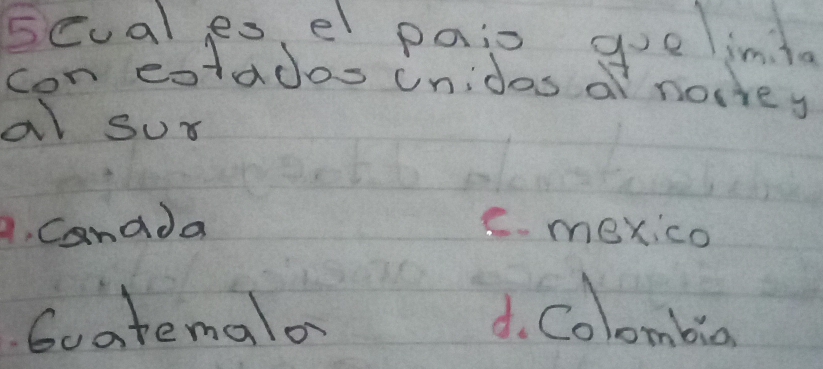 5 Cual es el pais que limita
con estados unidos al norte y
al sur
a. Canada
c. mexico
. Guatemala
d. Colombia